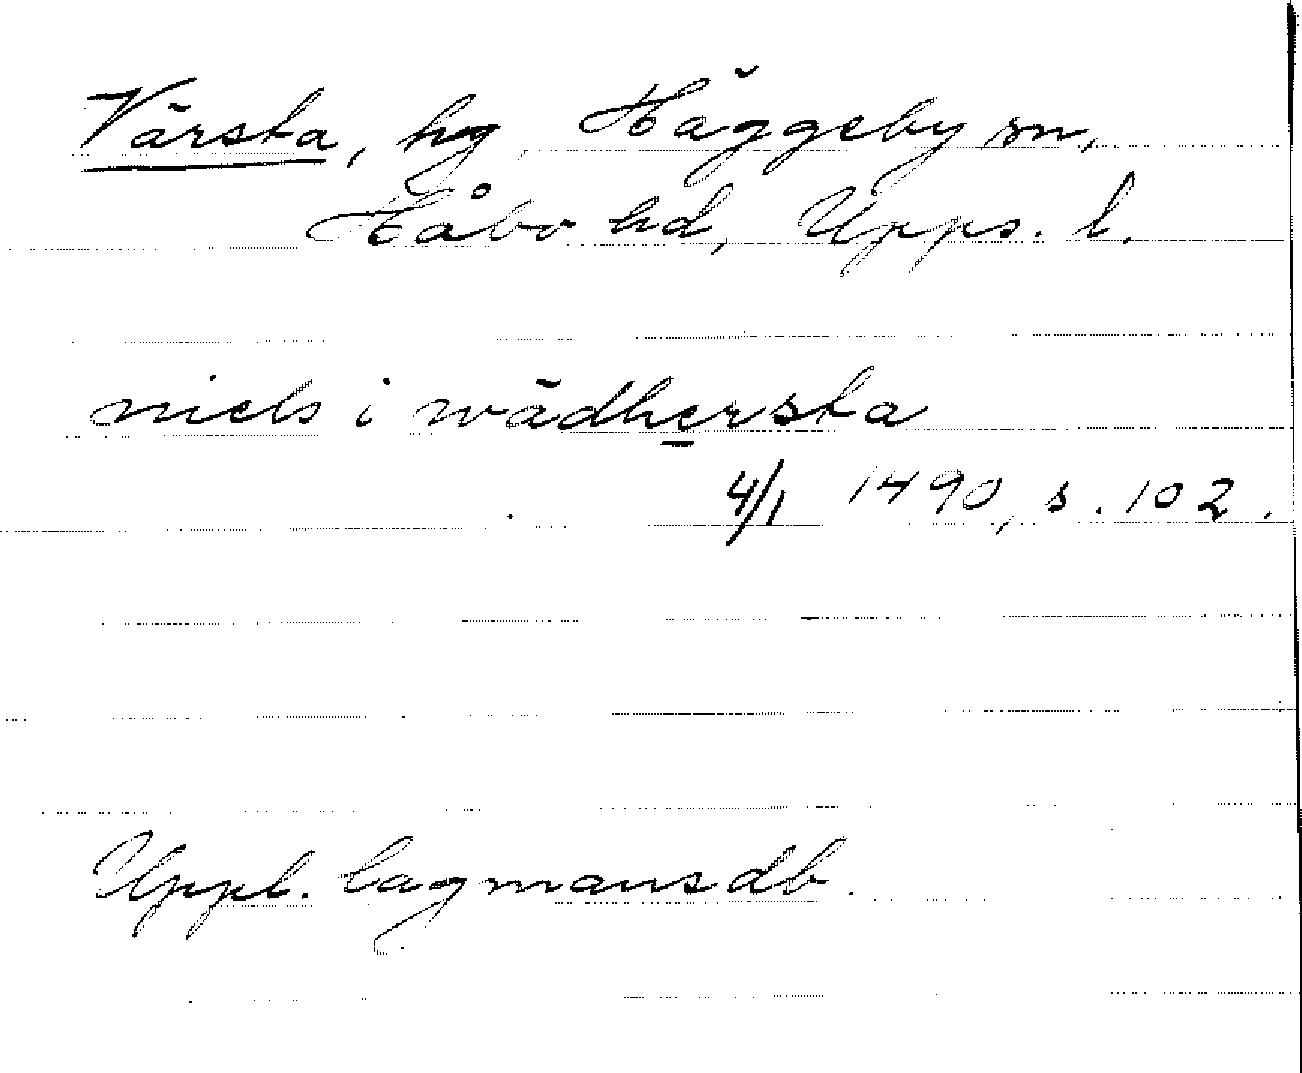 Värsta, hg Häggeby sn,
Håbo hd, Upps. l.
niels i wädhersta
4/1 1490, s. 102.
Uppl. lagmansdb.